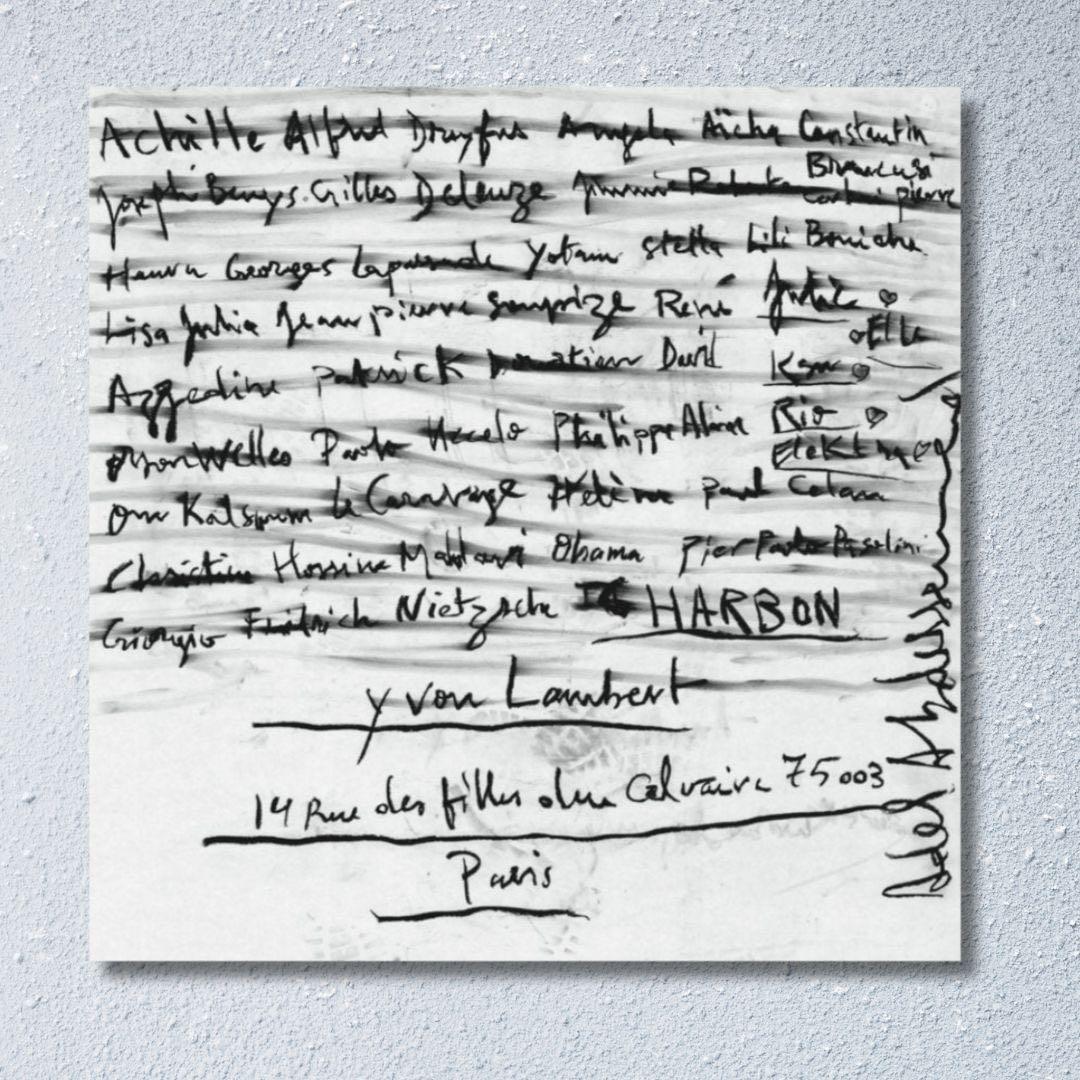 Achille Alfred Dreyfus Angela Aïcha Constantin
Brancusi
Joseph Beuys. Gilles Deleuze Jimmie pierre
Georges Lapassade Yotam stella Lili Boniche
Lisa Julia Jean pierre René Julie
Elle
Azzedine Patrick David
Orson Welles Paolo Uccelo Philippe Alain Rio
Elektra
Om Kalsoum le Caravage Hélène paul Celan
Christine Hossine Mahdavi Obama Pier Paolo Pasolini
Giorgio Friedrich Nietzsche HARBON
yvon Lambert
14 Rue des filles du Calvaire 75003
Paris
Adel Abdessemed